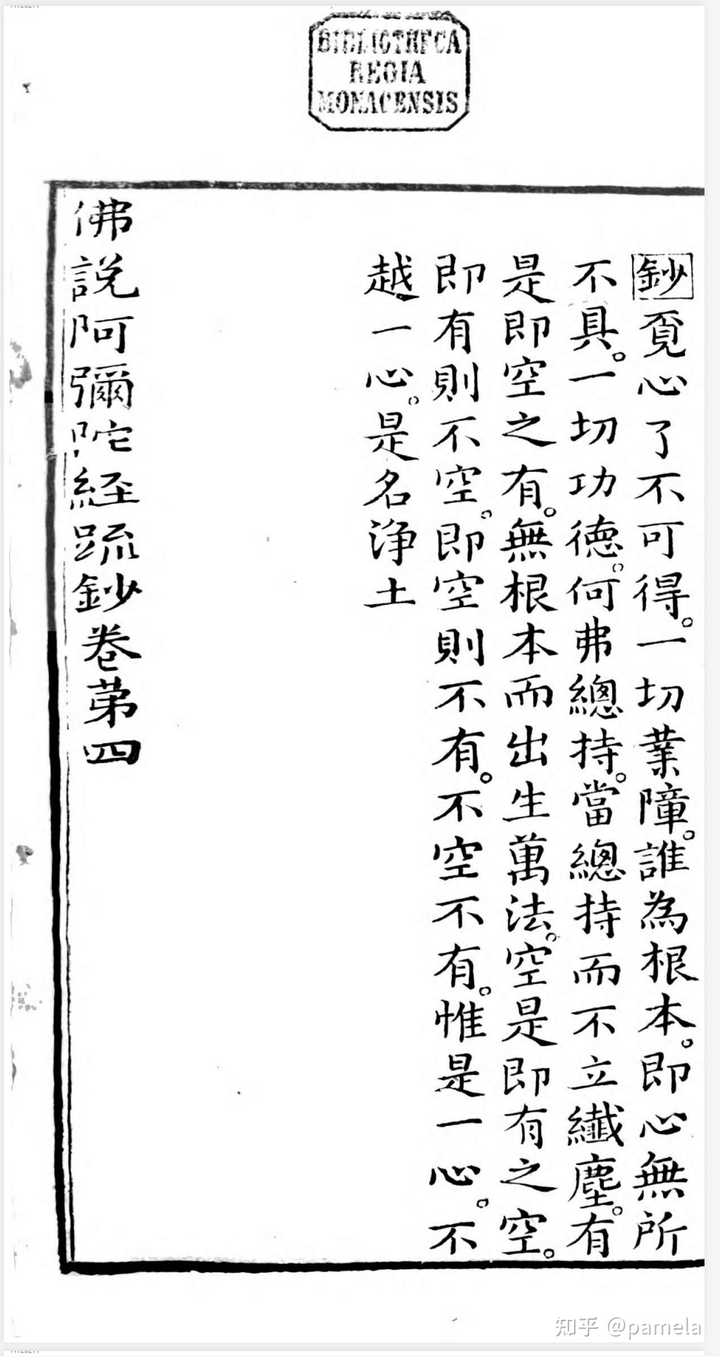 BIBLIOTHECA
REGIA
MONACENSIS
鈔覔心了不可得。一切業障。誰為根本。即心無所
不具。一切功德。何弗總持。當總持而不立纖塵。有
是即空之有。無根本而出生萬法。空是即有之空。
即有則不空。即空則不有。不空不有。惟是一心。不
越一心。是名淨土
佛說阿彌陀經疏鈔卷苐四
知乎 @pamela